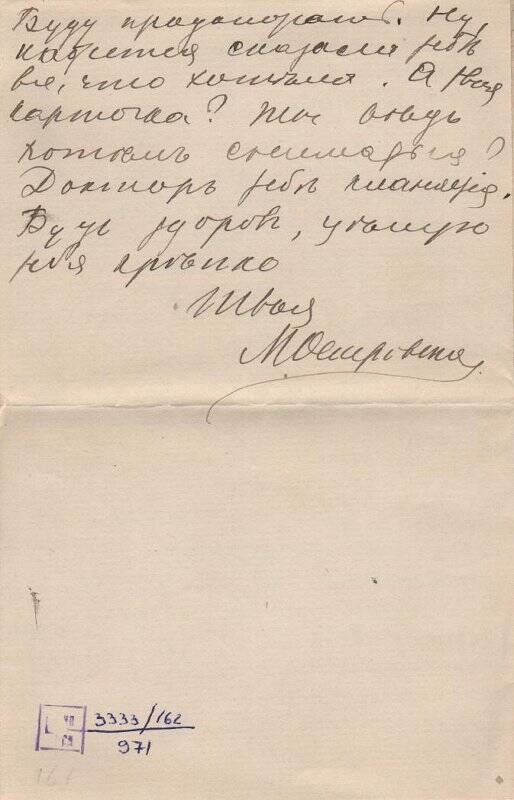 Буду продолжать. Ну,
кажется сказала тебѣ
все, что хотѣла. А твоя
карточка? Ты вѣдь
хотѣлъ сниматься?
Докторъ тебѣ кланяется.
Будь здоровъ, цѣлую
тебя крѣпко
Твоя
МОстровская
3333/162
971
161